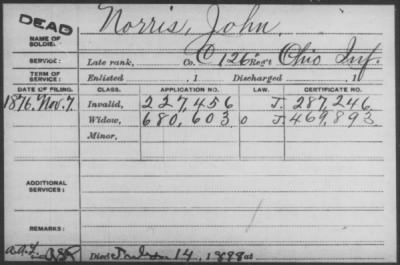 DEAD Norris, John.
NAME OF SOLDIER:
SERVICE: Late rank, Co. C 126 Reg't Ohio Inf.
TERM OF SERVICE: Enlisted , 1 Discharged , 1
DATE OF FILING. CLASS. APPLICATION NO. LAW. CERTIFICATE NO.
1876, Nov. 7. Invalid, 227,456 J. 287,246
Widow, 680,603 J. 469,893
Minor,
ADDITIONAL SERVICES:
REMARKS:
Died 14, 1888 at